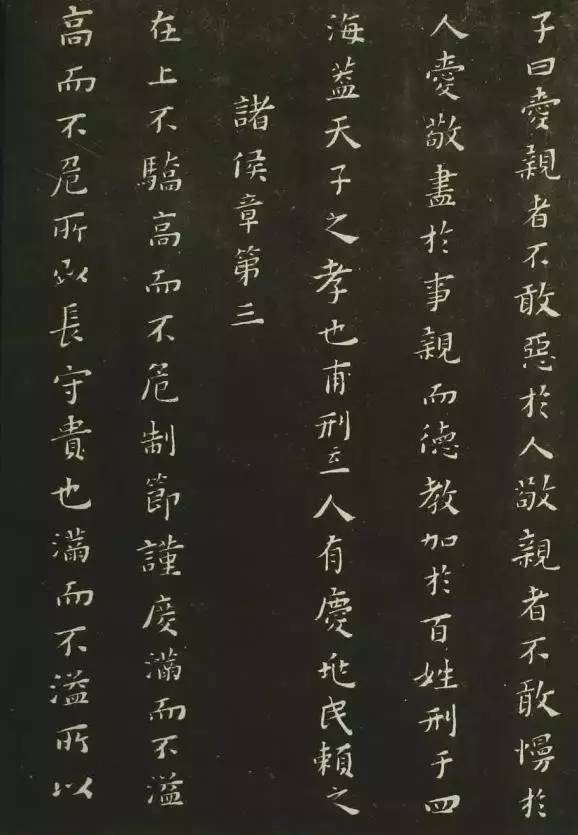 子曰愛親者不敢惡於人敬親者不敢慢於
人愛敬盡於事親而德教加於百姓刑于四
海蓋天子之孝也甫刑云一人有慶兆民賴之
諸侯章第三
在上不驕高而不危制節謹度滿而不溢
高而不危所以長守貴也滿而不溢所以